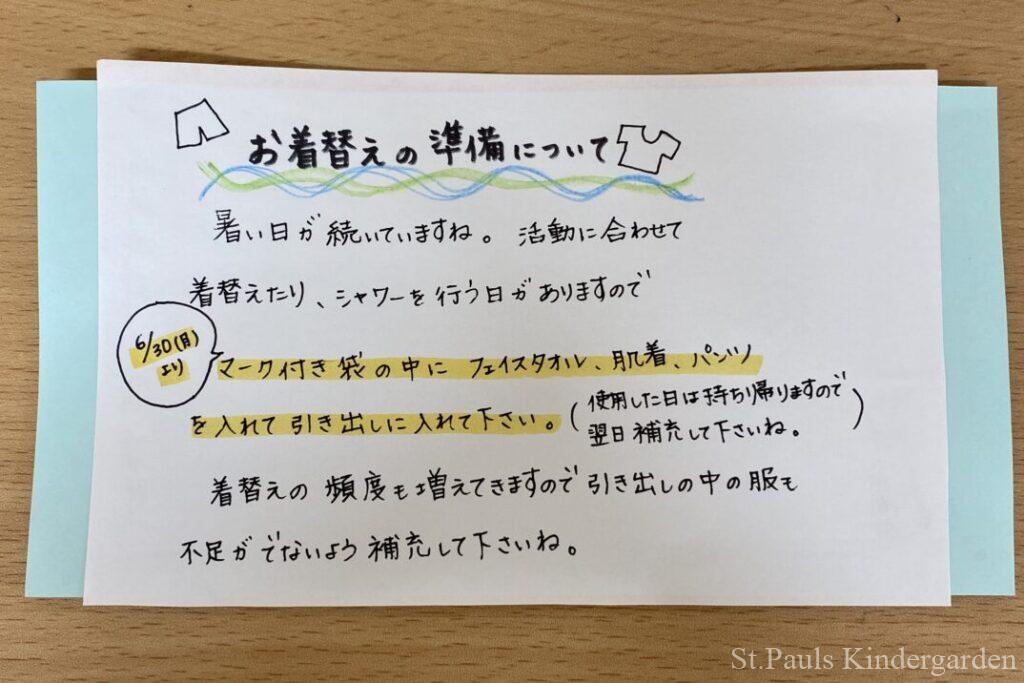 お着替えの準備について
暑い日が続いていますね。活動に合わせて
着替えたり、シャワーを行う日がありますので
6/30(月)
より
マーク付き袋の中に フェイスタオル、肌着、パンツ
を入れて引き出しに入れて下さい。
(使用した日は持ち帰りますので
翌日補充して下さいね。)
着替えの頻度も増えてきますので引き出しの中の服も
不足がでないよう補充して下さいね。
St.Pauls Kindergarden